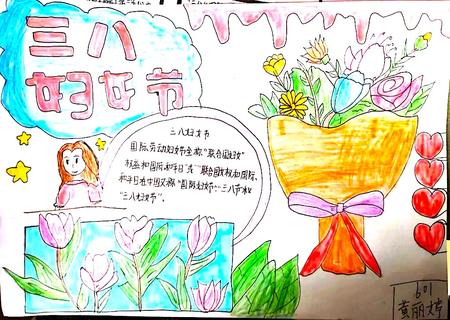 三八
妇女节
三八妇女节
国际劳动妇女节全称"联合国妇女
权益和国际和平日"或"联合国女权和国际
和平日在中国又称"国际妇女节"、"三八节"和
"三八妇女节"。
601
黄丽婷